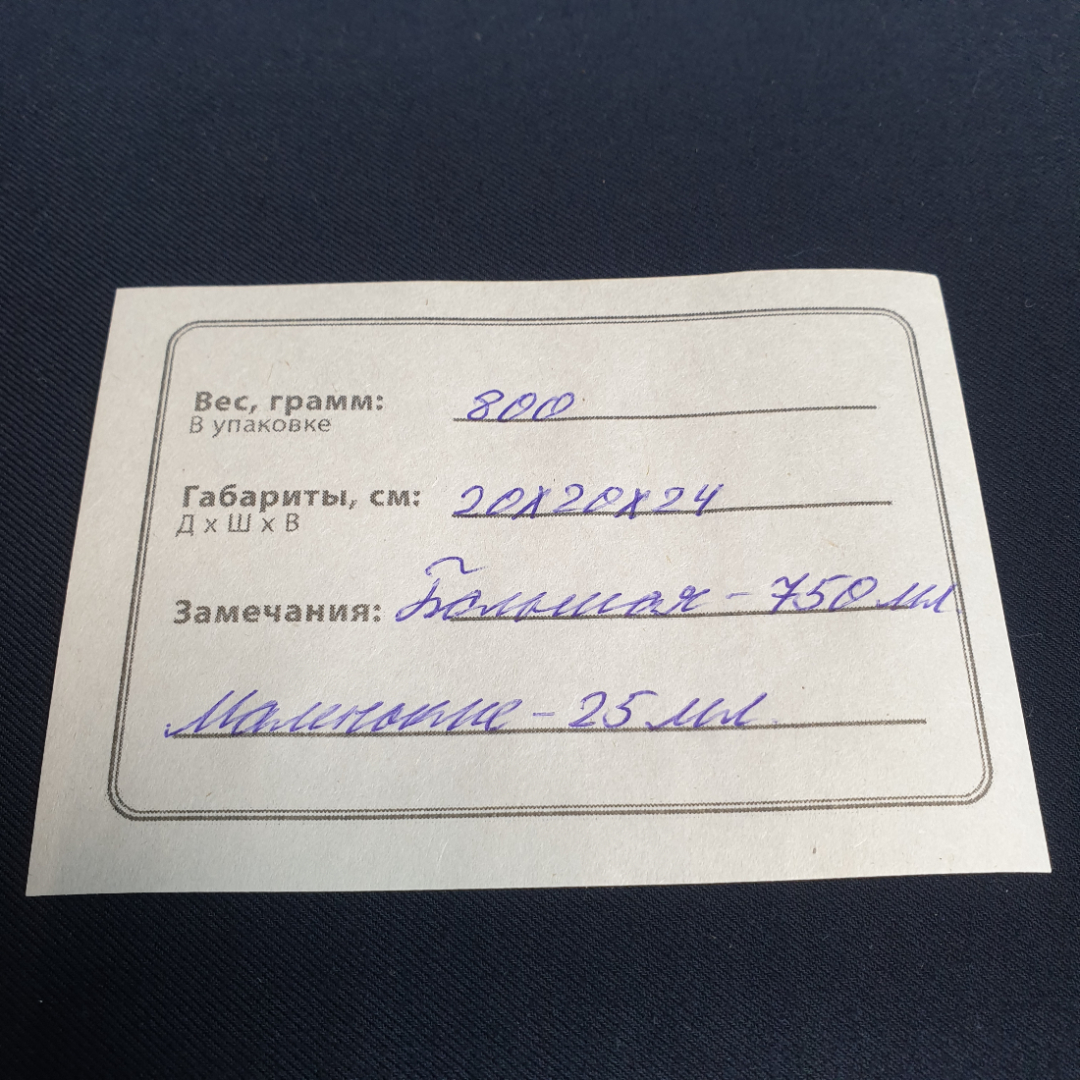 Вес, грамм: 800
В упаковке
Габариты, см: 20х20х24
Д х Ш х В
Замечания: Большая - 750 мл
Маленькие - 25 мл.